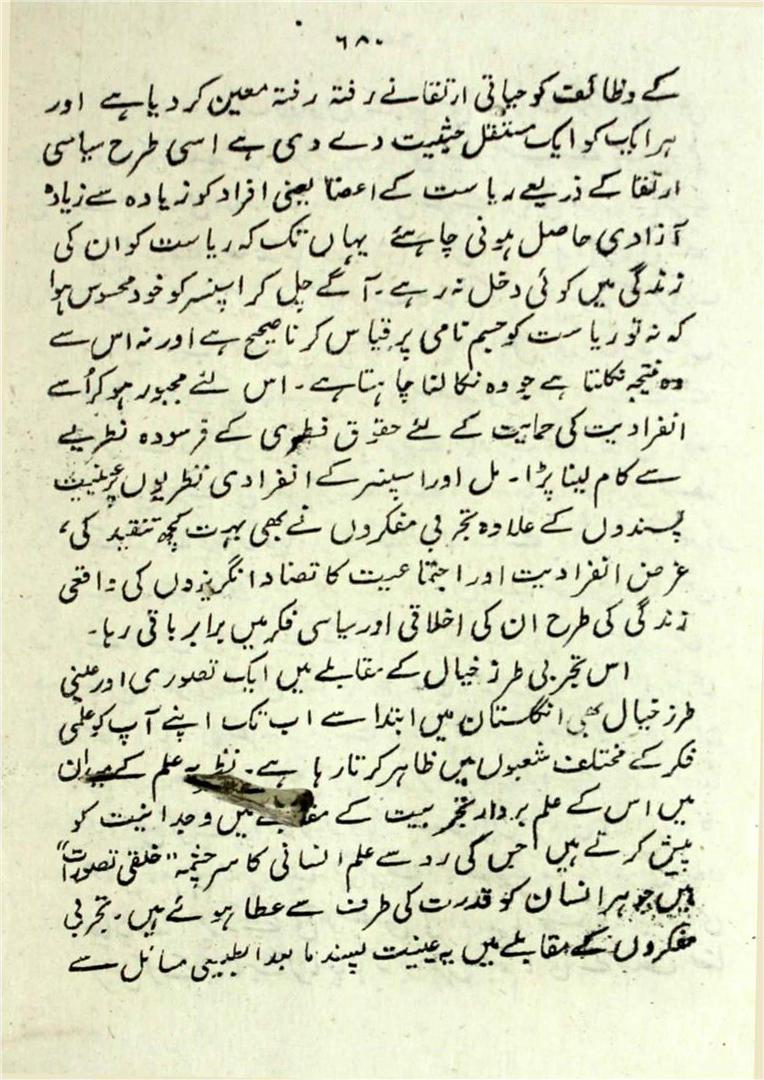 ۶۸۰
کے وظائف کو حیاتی ارتقا نے رفتہ رفتہ معین کر دیا ہے اور
ہر ایک کو ایک مستقل حیثیت دے دی ہے اسی طرح سیاسی
ارتقا کے ذریعے ریاست کے اعضا یعنی افراد کو زیادہ سے زیادہ
آزادی حاصل ہونی چاہئے یہاں تک کہ ریاست کو ان کی
زندگی میں کوئی دخل نہ رہے۔ آگے چل کر اسپنسر کو خود محسوس ہوا
کہ نہ تو ریاست کو جسم نامی پر قیاس کرنا صحیح ہے اور نہ اس سے
وہ نتیجہ نکلتا ہے جو وہ نکالنا چاہتا ہے۔ اس لئے مجبور ہو کر اُسے
انفرادیت کی حمایت کے لئے حقوق فطری کے فرسودہ نظریے
سے کام لینا پڑا۔ مل اور اسپنسر کے انفرادی نظریوں پر عینیت
پسندوں کے علاوہ تجربی مفکروں نے بھی بہت کچھ تنقید کی،
غرض انفرادیت اور اجتماعیت کا تضاد انگریزوں کی واقعی
زندگی کی طرح ان کی اخلاقی اور سیاسی فکر میں برابر باقی رہا۔
اس تجربی طرز خیال کے مقابلے میں ایک تصوری اور عینی
طرز خیال بھی انگلستان میں ابتدا سے اب تک اپنے آپ کو علمی
فکر کے مختلف شعبوں میں ظاہر کرتا رہا ہے۔ نظریہ علم کے میدان
میں اس کے علم بردار تجربیت کے مقابلے میں وجدانیت کو
پیش کرتے ہیں جس کی رو سے علم انسانی کا سرچشمہ "خلقی تصورات"
ہیں جو ہر انسان کو قدرت کی طرف سے عطا ہوئے ہیں۔ تجربی
مفکروں کے مقابلے میں یہ عینیت پسند ما بعد الطبیعی مسائل سے